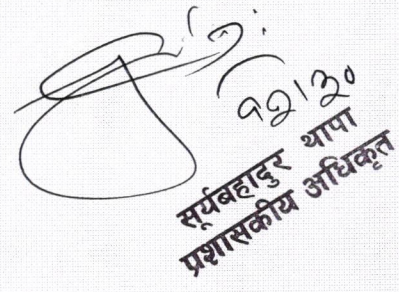 १२।३०
सूर्यबहादुर थापा
प्रशासकीय अधिकृत